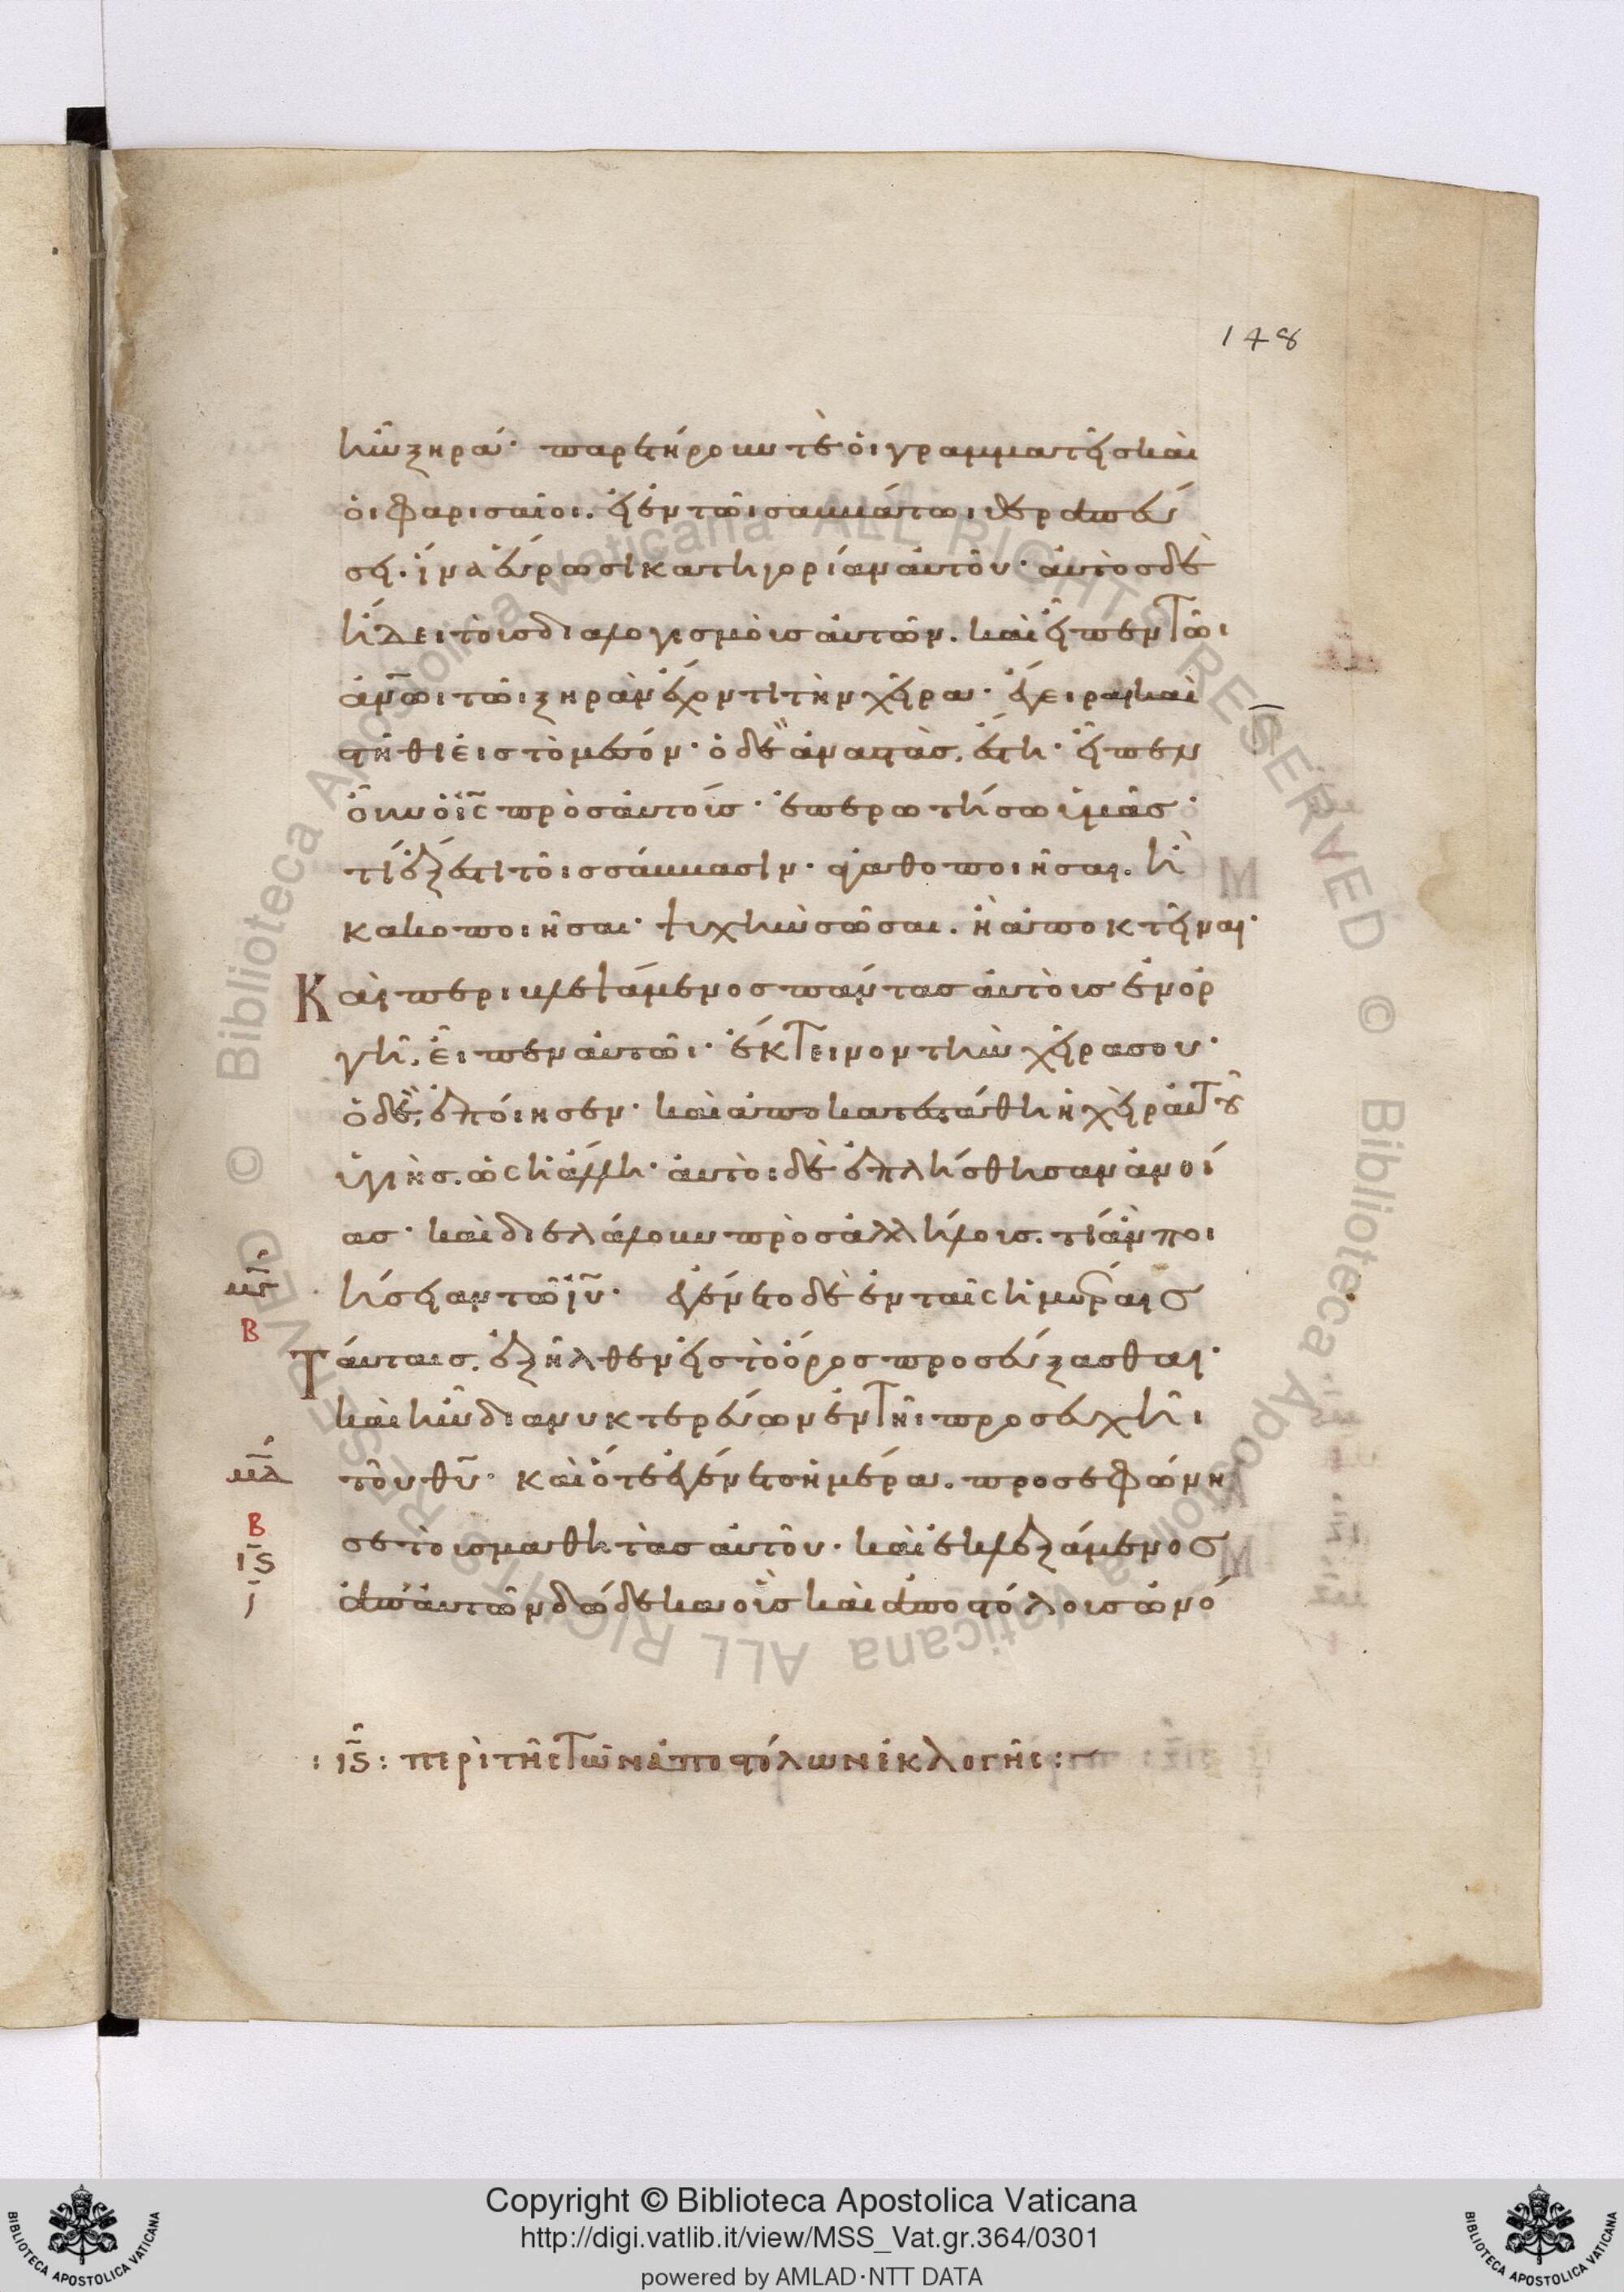 148
ἦν ξηρά· παρετήρουν τὲ οἱ γραμματεῖς καὶ
οἱ φαρισαῖοι. εἰ ἐν τῶι σαββάτωι θεραπεύ
σει. ἵνα εὕρωσι κατηγορίαν αὐτοῦ· αὐτὸς δὲ
ἤδει τοὺς διαλογισμοὺς αὐτῶν. καὶ εἶπεν τῶι
ἀν̅ωι τῶι ξηρὰν ἔχοντι τὴν χεῖρα· ἔγειραι καὶ
στῆθι εἰς τὸ μέσον· ὁ δὲ ἀναστὰς, ἔστη· εἶπεν
οὖν ὁ ι̅ς̅ πρὸς αὐτούς· ἐπερωτήσω ὑμᾶς·
τί ἔξεστι τοῖς σάββασιν· ἀγαθοποιῆσαι. ἢ
κακοποιῆσαι· ψυχὴν σῶσαι. ἢ ἀποκτεῖναι·
Καὶ περιβλεψάμενος πάντας αὐτοὺς ἐν ὀρ
γῆ, εἶπεν αὐτῶι· ἔκτεινον τὴν χεῖρα σου·
ὁ δὲ, ἐποίησεν· καὶ ἀποκατεστάθη ἡ χεὶρ αὐτοῦ
ὑγιὴς. ὡς ἡ ἄλλη· αὐτοὶ δὲ ἐπλήσθησαν ἀνοί
ας· καὶ διελάλουν πρὸς ἀλλήλους. τί ἂν ποι
μ̅γ̅ ήσειαν τῶ ι̅υ̅· ἐγένετο δὲ ἐν ταῖς ἡμέραις
Β
Ταύταις. ἐξῆλθεν εἰς τὸ ὄρος προσεύξασθαι·
καὶ ἦν διανυκτερεύων ἐν τῆι προσευχῆι
μ̅δ̅ τοῦ θ̅υ̅· καὶ ὅτε ἐγένετο ἡμέρα. προσεφώνη
Β
σε τοὺς μαθητὰς αὐτοῦ· καὶ ἐκλεξάμενος
ι̅ϛ̅
ἀπ' αὐτῶν δώδεκα οὓς καὶ ἀποστόλους ὠνό
: ι̅ϛ̅ : περὶ τῆς τῶν ἀποστόλων ἐκλογῆς :
Copyright © Biblioteca Apostolica Vaticana
http://digi.vatlib.it/view/MSS_Vat.gr.364/0301
powered by AMLAD·NTT DATA
BIBLIOTECA APOSTOLICA VATICANA
BIBLIOTECA APOSTOLICA VATICANA
© Biblioteca Apostolica Vaticana ALL RIGHTS RESERVED © Biblioteca Apostolica Vaticana ALL RIGHTS RESERVED